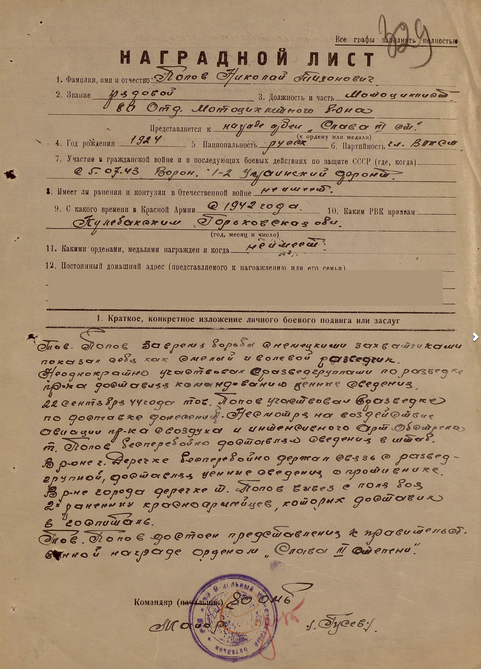 Все графы заполнять полностью
329
НАГРАДНОЙ ЛИСТ
1. Фамилия, имя и отчество: Попов Николай Тихонович
2. Звание рядовой 3. Должность и часть Мотоциклист
80 Отд. Мотоциклетного б-она
Представляется к награде орден „Слава III ст.
(к ордену или медали)
4. Год рождения 1924 5 Национальность русск 6. Партийность чл. ВЛКСМ
7. Участия в гражданской войне и в последующих боевых действиях по защите СССР (где, когда)
с 5.07.43 Ворон. 1-2 Украинский фронт
8. Имеет ли ранения и контузии в Отечественной войне не имеет.
9. С какого времени в Красной Армии с 1942 года. 10. Каким РВК призван
Кулебакским Горьковская обл.
(год, месяц и число)
11. Какими орденами, медалями награжден и когда не имеет.
12. Постоянный домашний адрес (представляемого к награждению или его семьи)
1. Краткое, конкретное изложение личного боевого подвига или заслуг
Тов. Попов за время борьбы с немецкими захватчиками
показал себя как смелый и волевой разведчик.
Неоднократно участвовал с разведгруппами по разведке
пр-ка доставляя командованию ценные сведения.
22 сентября 44 года тов. Попов участвовал в разведке
по доставке донесений. Несмотря на воздействие
авиации пр-ка с воздуха и интенсивного Арт. Обстрела
т. Попов бесперебойно доставлял сведения в штаб.
В р-оне г. Деречке бесперебойно держал связь с развед-
группой, доставляя ценные сведения о противнике.
В р-не города деречке т. Попов вывез с поля боя
2х раненных красноармейцев, которых доставил
в госпиталь.
Тов. Попов достоин представления к правительст-
венной награде орденом „Слава III степени".
Командир (начальник) 80 омб
Майор г. Гусев